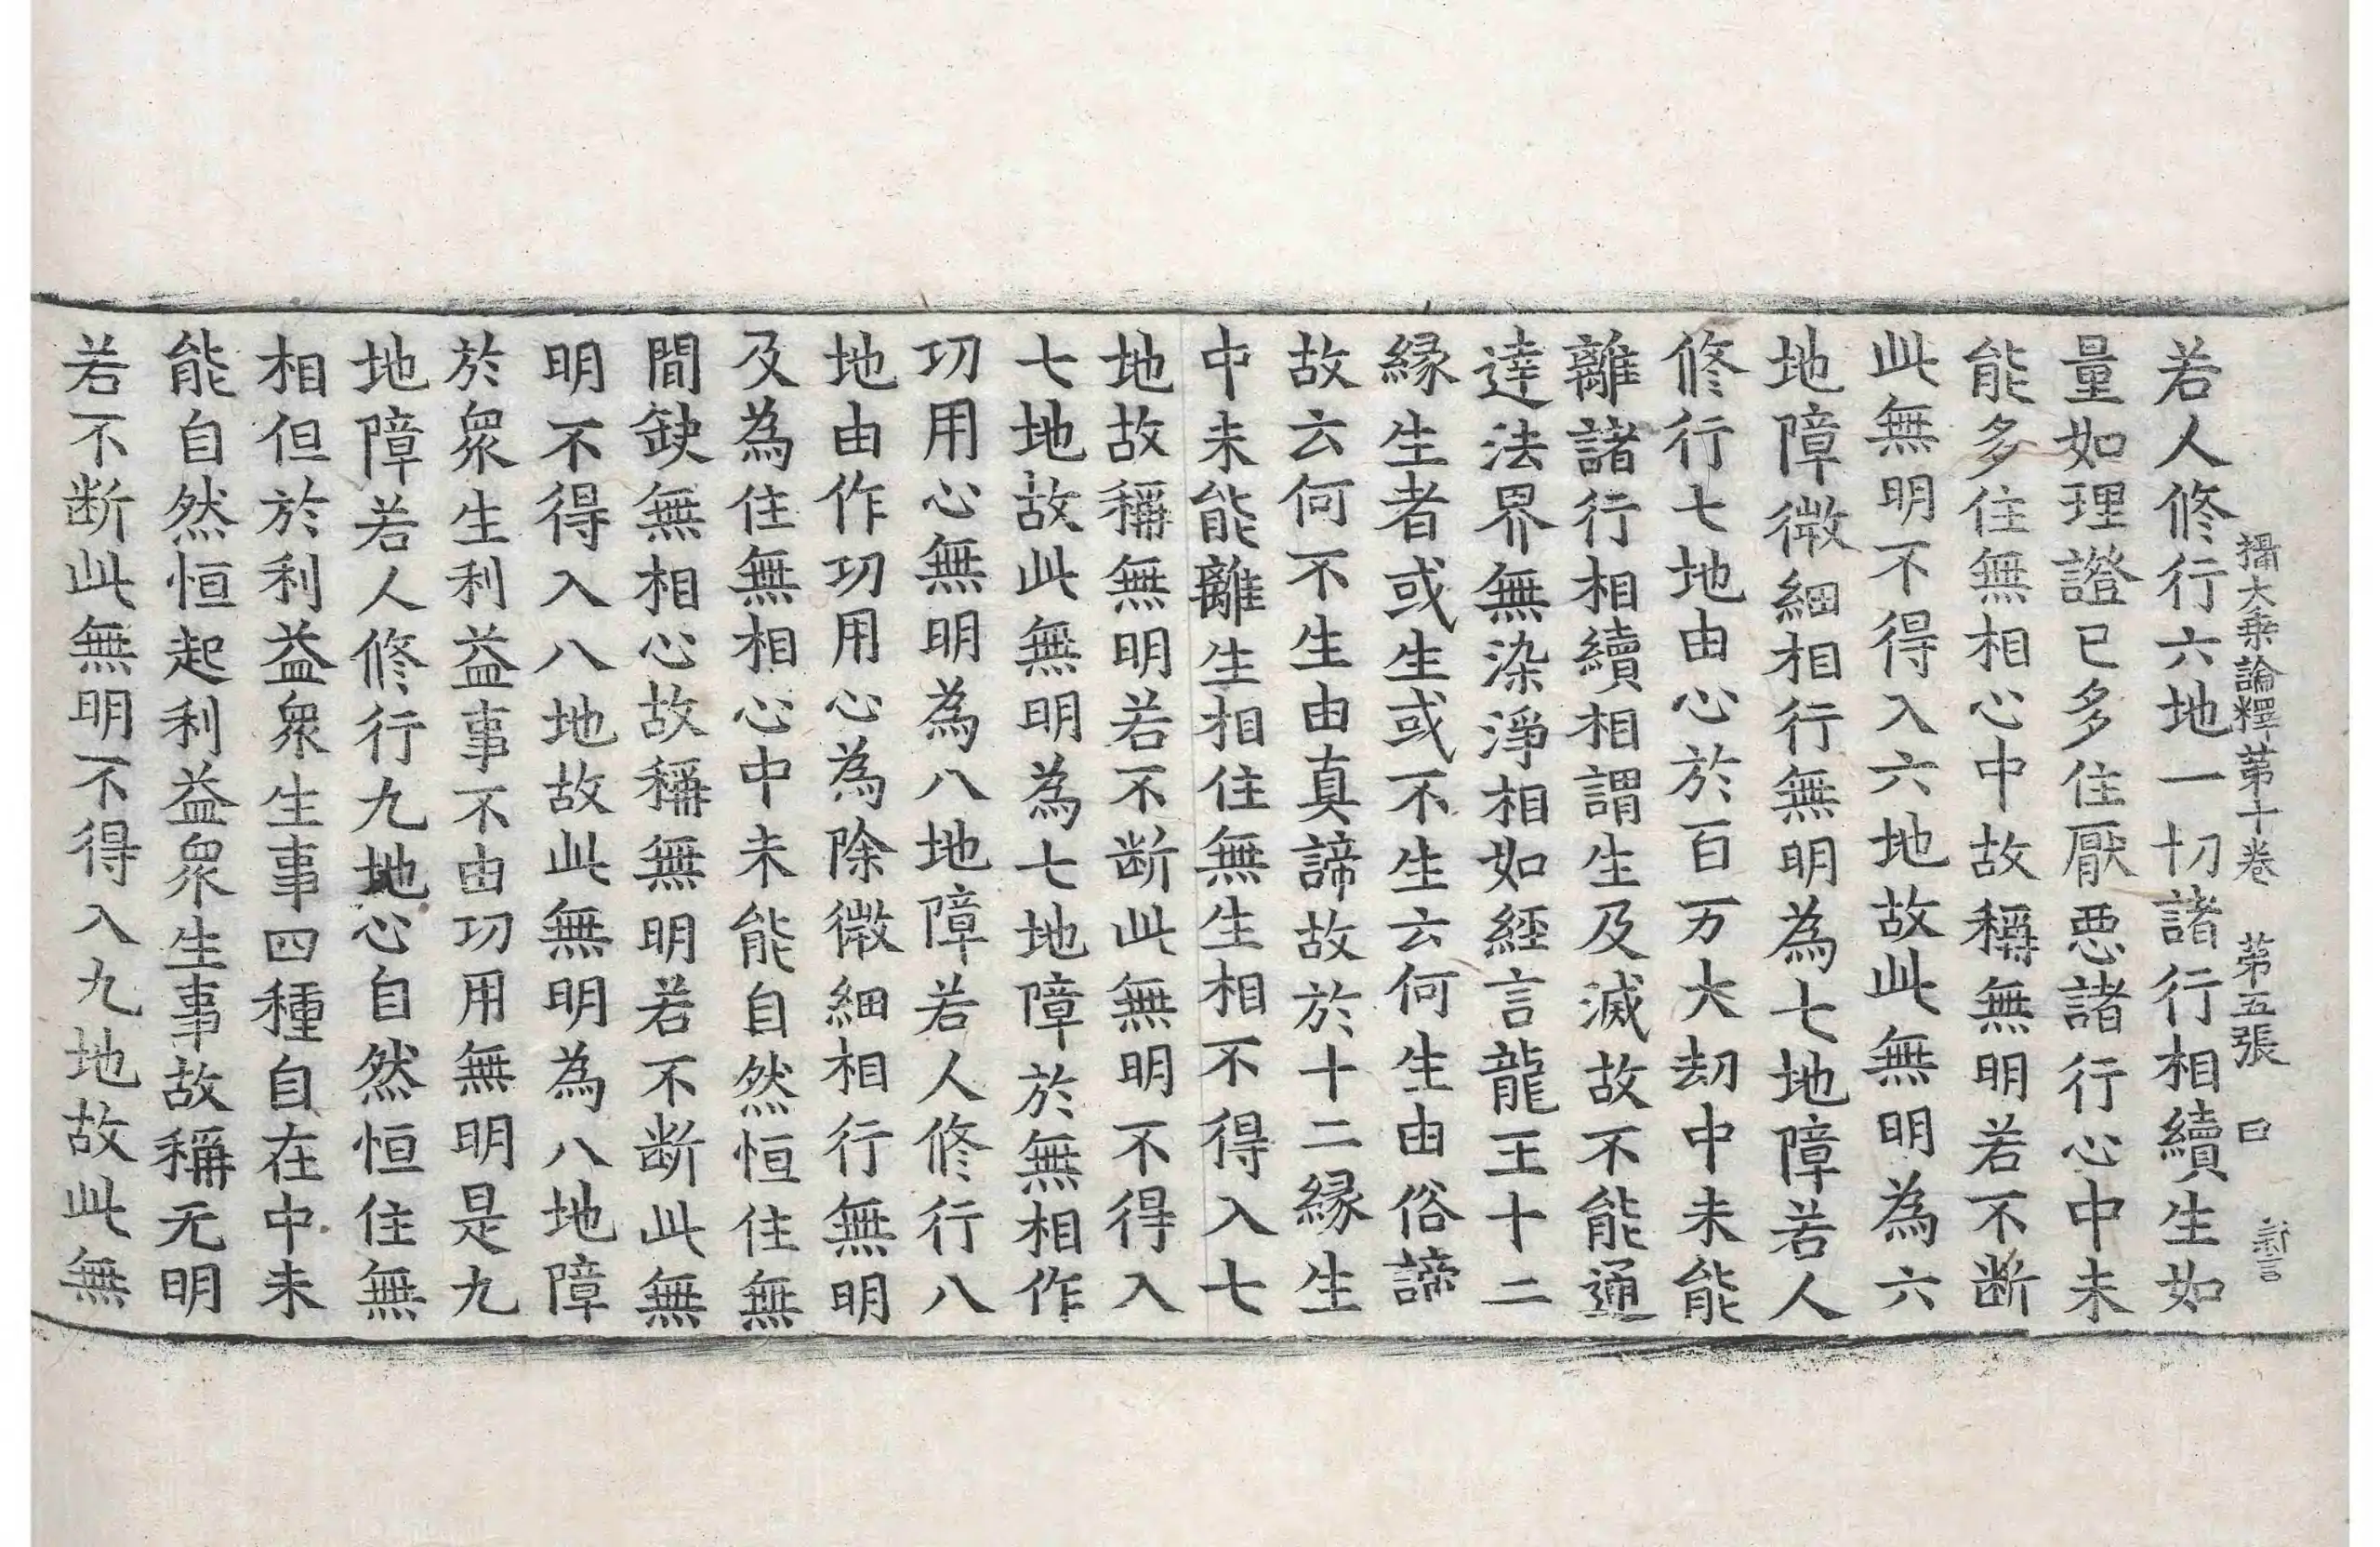 攝大乗論釋苐十卷　苐五張　曰
若人修行六地一切諸行相續生如
量如理證已多住厭惡諸行心中未
能多住無相心中故稱無明若不断
此無明不得入六地故此無明為六
地障微細相行無明為七地障若人
修行七地由心於百万大劫中未能
離諸行相續相謂生及滅故不能通
達法界無染淨相如經言龍王十二
縁生者或生或不生云何生由俗諦
故云何不生由真諦故於十二縁生
中未能離生相住無生相不得入七
地故稱無明若不断此無明不得入
七地故此無明為七地障於無相作
功用心無明為八地障若人修行八
地由作功用心為除微細相行無明
及為住無相心中未能自然恒住無
間缺無相心故稱無明若不断此無
明不得入八地故此無明為八地障
於衆生利益事不由功用無明是九
地障若人修行九地心自然恒住無
相但於利益衆生事四種自在中未
能自然恒起利益衆生事故稱无明
若不断此無明不得入九地故此無